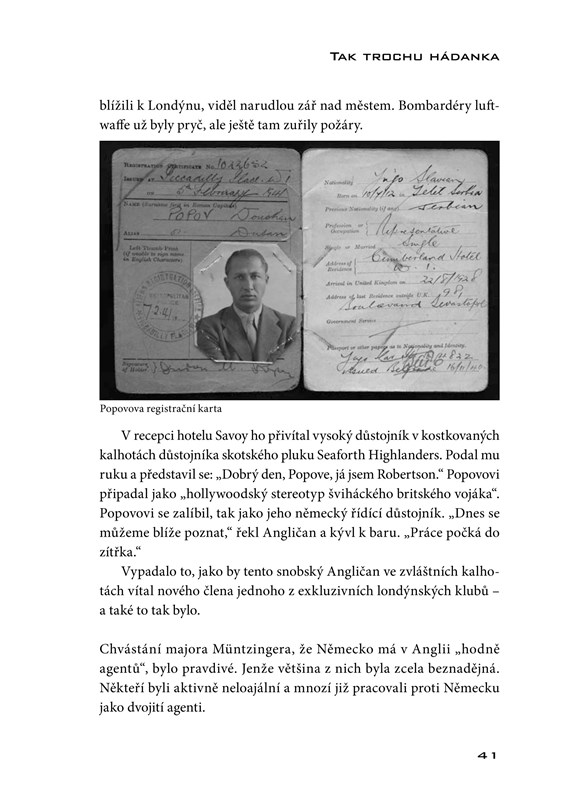 Tak trochu hádanka
blížili k Londýnu, viděl narudlou zář nad městem. Bombardéry luft-
waffe už byly pryč, ale ještě tam zuřily požáry.
Registration Certificate No. 1022652
Issued at Piccadilly Place W1
on 5th February 1941
Name (Surname first in Roman Capitals)
POPOV Douchan
Alias Dusan
Left Thumb Print
(if unable to sign name
in English Characters)
Signature
of Holder
Nationality Jugo Slavian
Born on 10/7/12 in Titel Serbia
Previous Nationality (if any) Serbian
Profession or
Occupation Representative
Single or Married Single
Address of
Residence Cumberland Hotel
W.1.
Arrived in United Kingdom on
Address of last Residence outside U.K.
Boulevard Sevastopol
Government Service
Passport or other papers as to Nationality and Identity.
Jugo Slav
Issued Belgrade
Popovova registrační karta
V recepci hotelu Savoy ho přivítal vysoký důstojník v kostkovaných
kalhotách důstojníka skotského pluku Seaforth Highlanders. Podal mu
ruku a představil se: „Dobrý den, Popove, já jsem Robertson.“ Popovovi
připadal jako „hollywoodský stereotyp šviháckého britského vojáka“.
Popovovi se zalíbil, tak jako jeho německý řídící důstojník. „Dnes se
můžeme blíže poznat,“ řekl Angličan a kývl k baru. „Práce počká do
zítřka.“
Vypadalo to, jako by tento snobský Angličan ve zvláštních kalho-
tách vítal nového člena jednoho z exkluzivních londýnských klubů –
a také to tak bylo.
Chvástání majora Müntzingera, že Německo má v Anglii „hodně
agentů“, bylo pravdivé. Jenže většina z nich byla zcela beznadějná.
Někteří byli aktivně neloajální a mnozí již pracovali proti Německu
jako dvojití agenti.
41